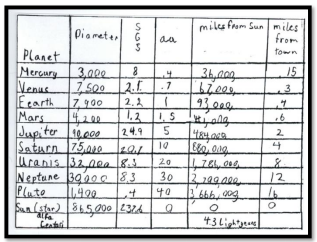 Planet Diameter SGS aa miles from Sun miles from town
Mercury 3,000 8 .4 36,000 .15
Venus 7,500 2.5 .7 67,000 .3
Eearth 7,900 2.2 1 93,000 .4
Mars 4,200 1.2 1.5 .6
Jupiter 90,000 24.9 5 484,000 2
Saturn 75,000 20.7 10 4
Uranis 32,000 8.3 20 8
Neptune 30,000 8.3 30 12
Pluto 1,400 .4 40 3,666,000 16
Sun (star) 865,000 0 0 0
alfa Centari 4.3 Lightyears